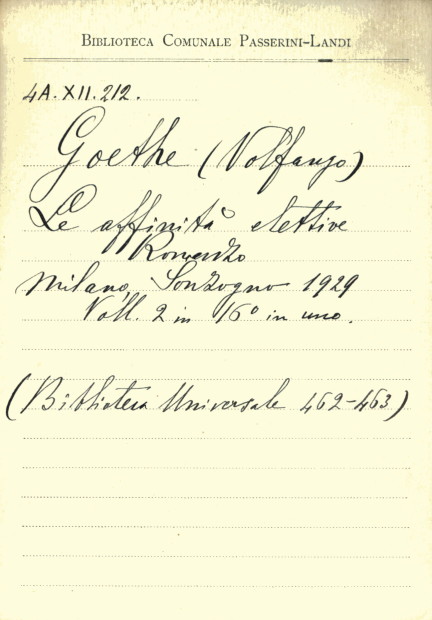 BIBLIOTECA COMUNALE PASSERINI-LANDI
4A. XII. 212.
Goethe (Volfango)
Le affinità elettive
Romanzo
Milano, Sonzogno 1929
Voll. 2 in 16º in uno.
(Biblioteca Universale 462-463)